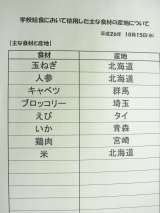 学校給食において使用した主な食材の産地について
平成26年 10月15日(水)
【主な食材と産地】
食材 産地
玉ねぎ 北海道
人参 北海道
キャベツ 群馬
ブロッコリー 埼玉
えび タイ
いか 青森
鶏肉 宮崎
米 北海道